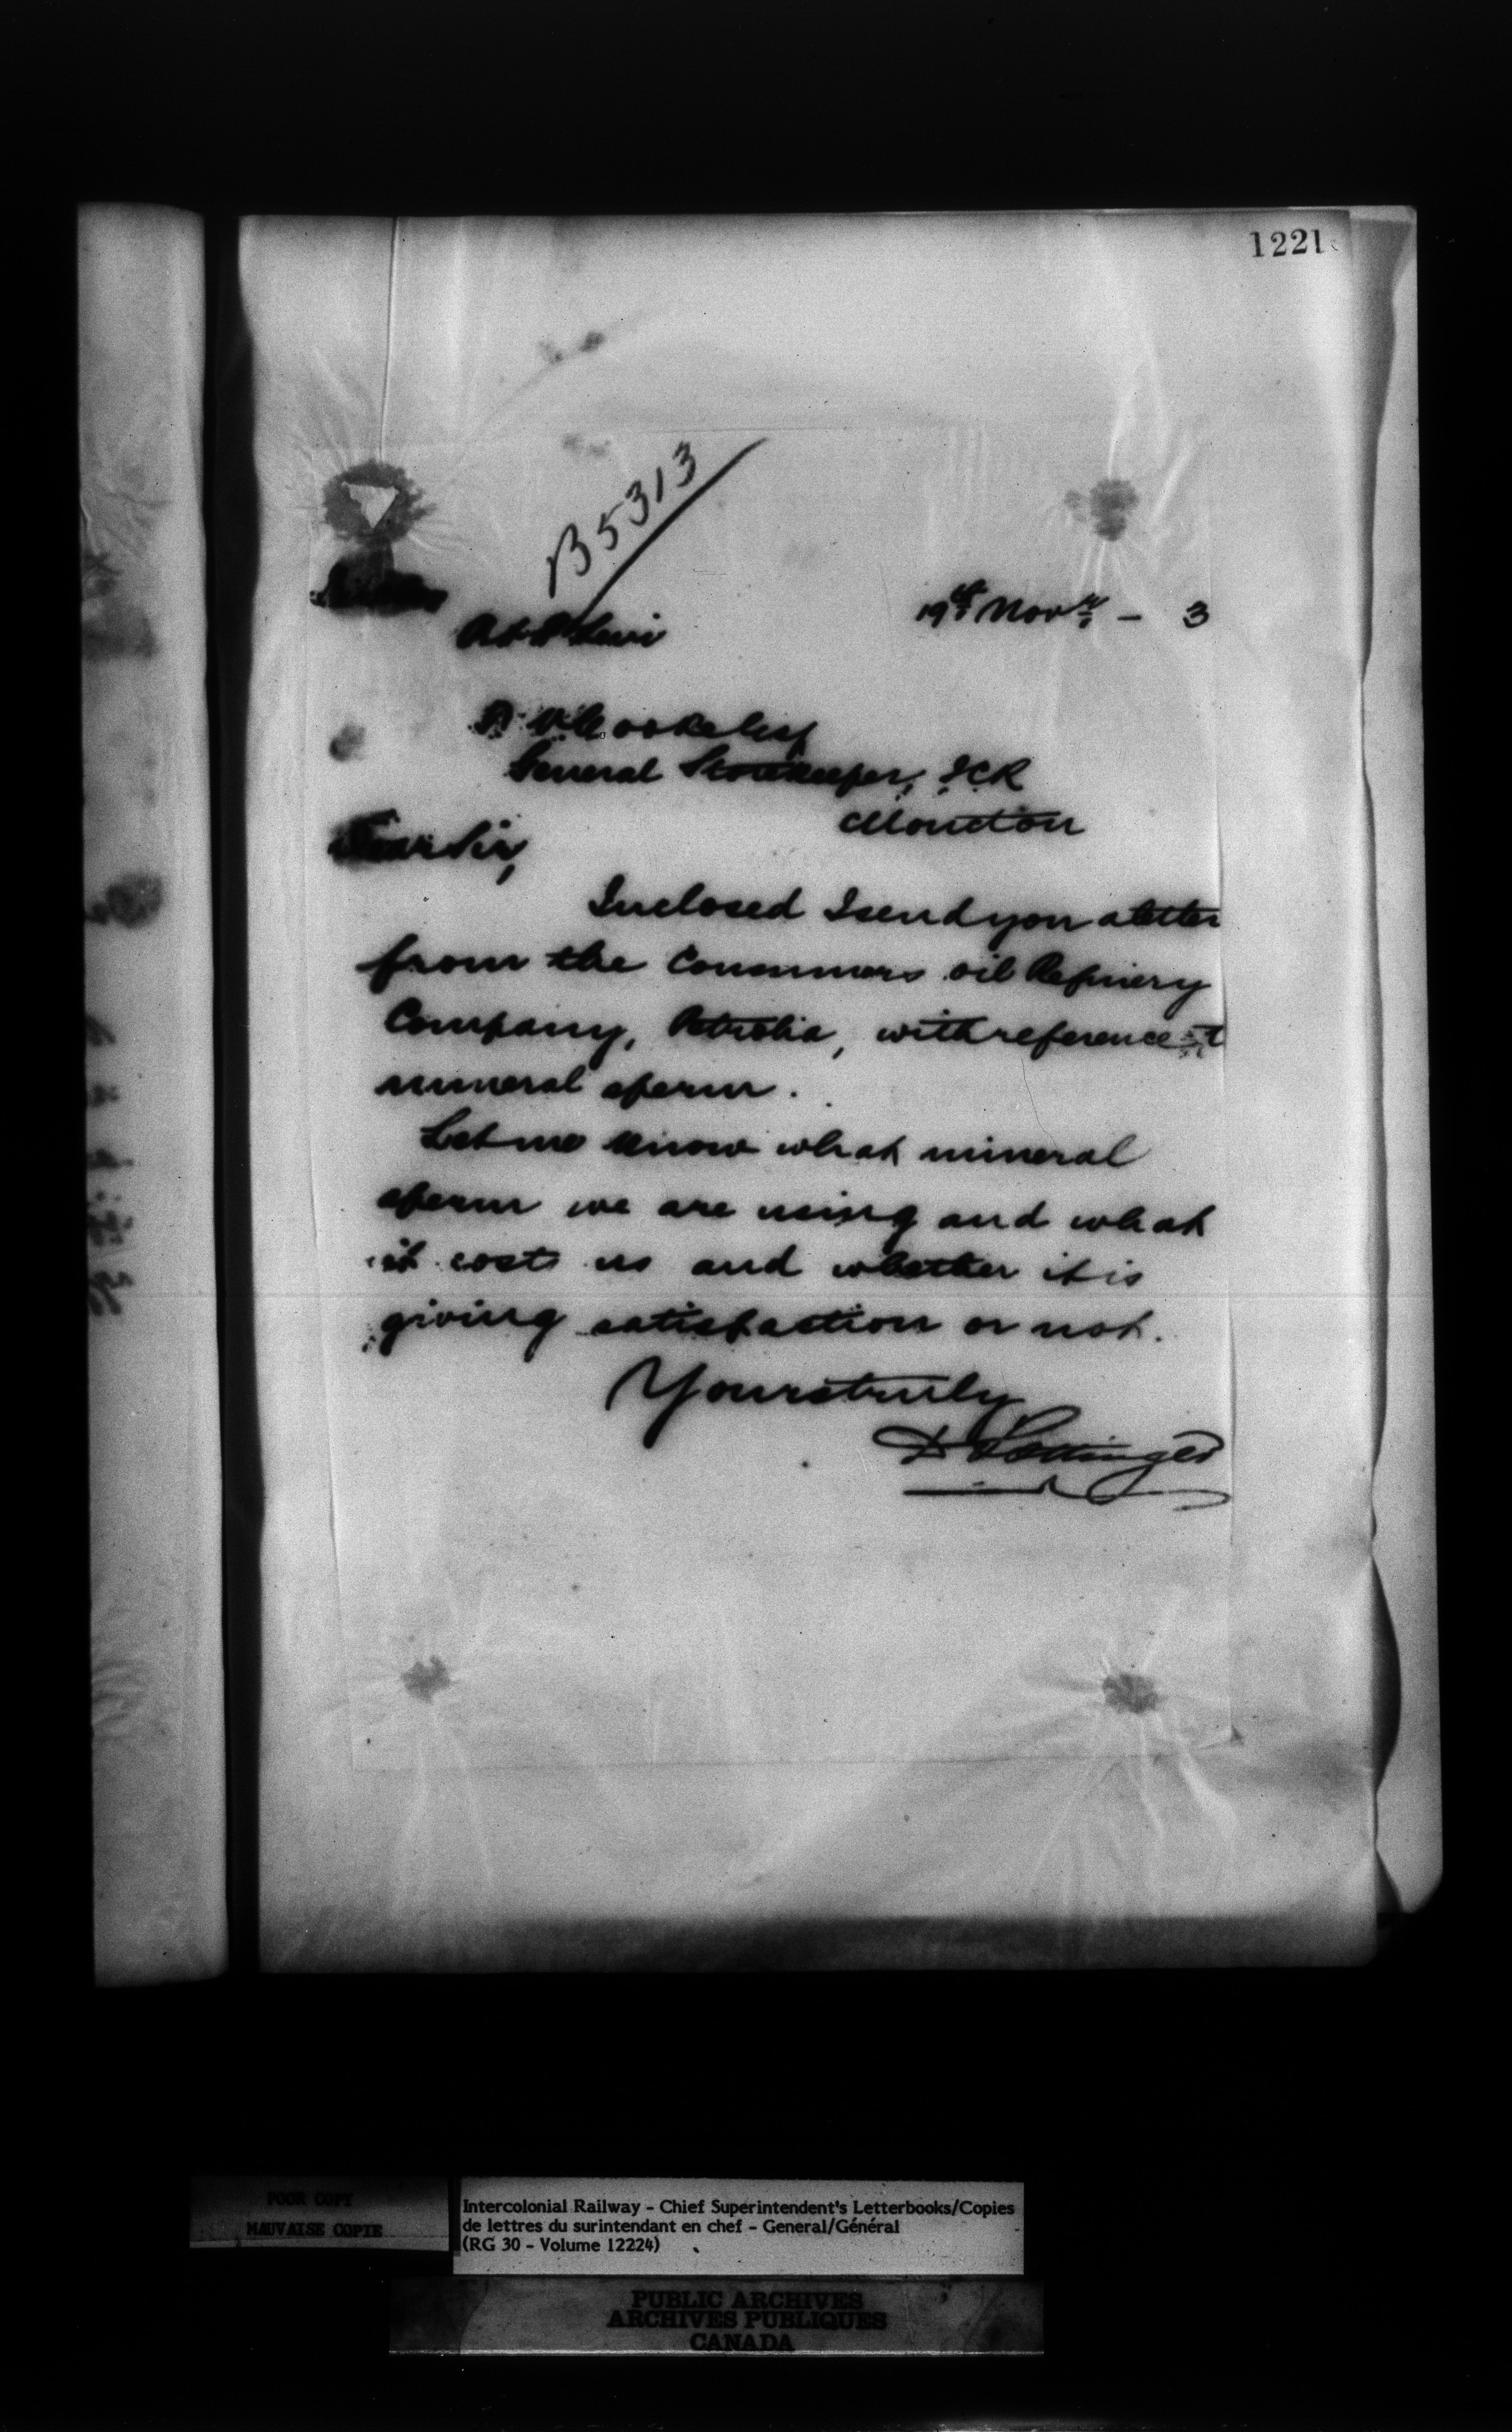 1221
B5313
19th Novr - 3
T. V. Cooke Esq
General Storekeeper, ICR
Moncton
Dear Sir,
Inclosed I send you a letter
from the Consumers oil Refinery
Company, Petrolia, with reference t
mineral sperm.
Let me know what mineral
sperm we are using and what
it costs us and whether it is
giving satisfaction or not.
Yours truly
D Pottinger
POOR COPY
MAUVAISE COPIE
Intercolonial Railway - Chief Superintendent's Letterbooks/Copies
de lettres du surintendant en chef - General/Général
(RG 30 - Volume 12224)
PUBLIC ARCHIVES
ARCHIVES PUBLIQUES
CANADA